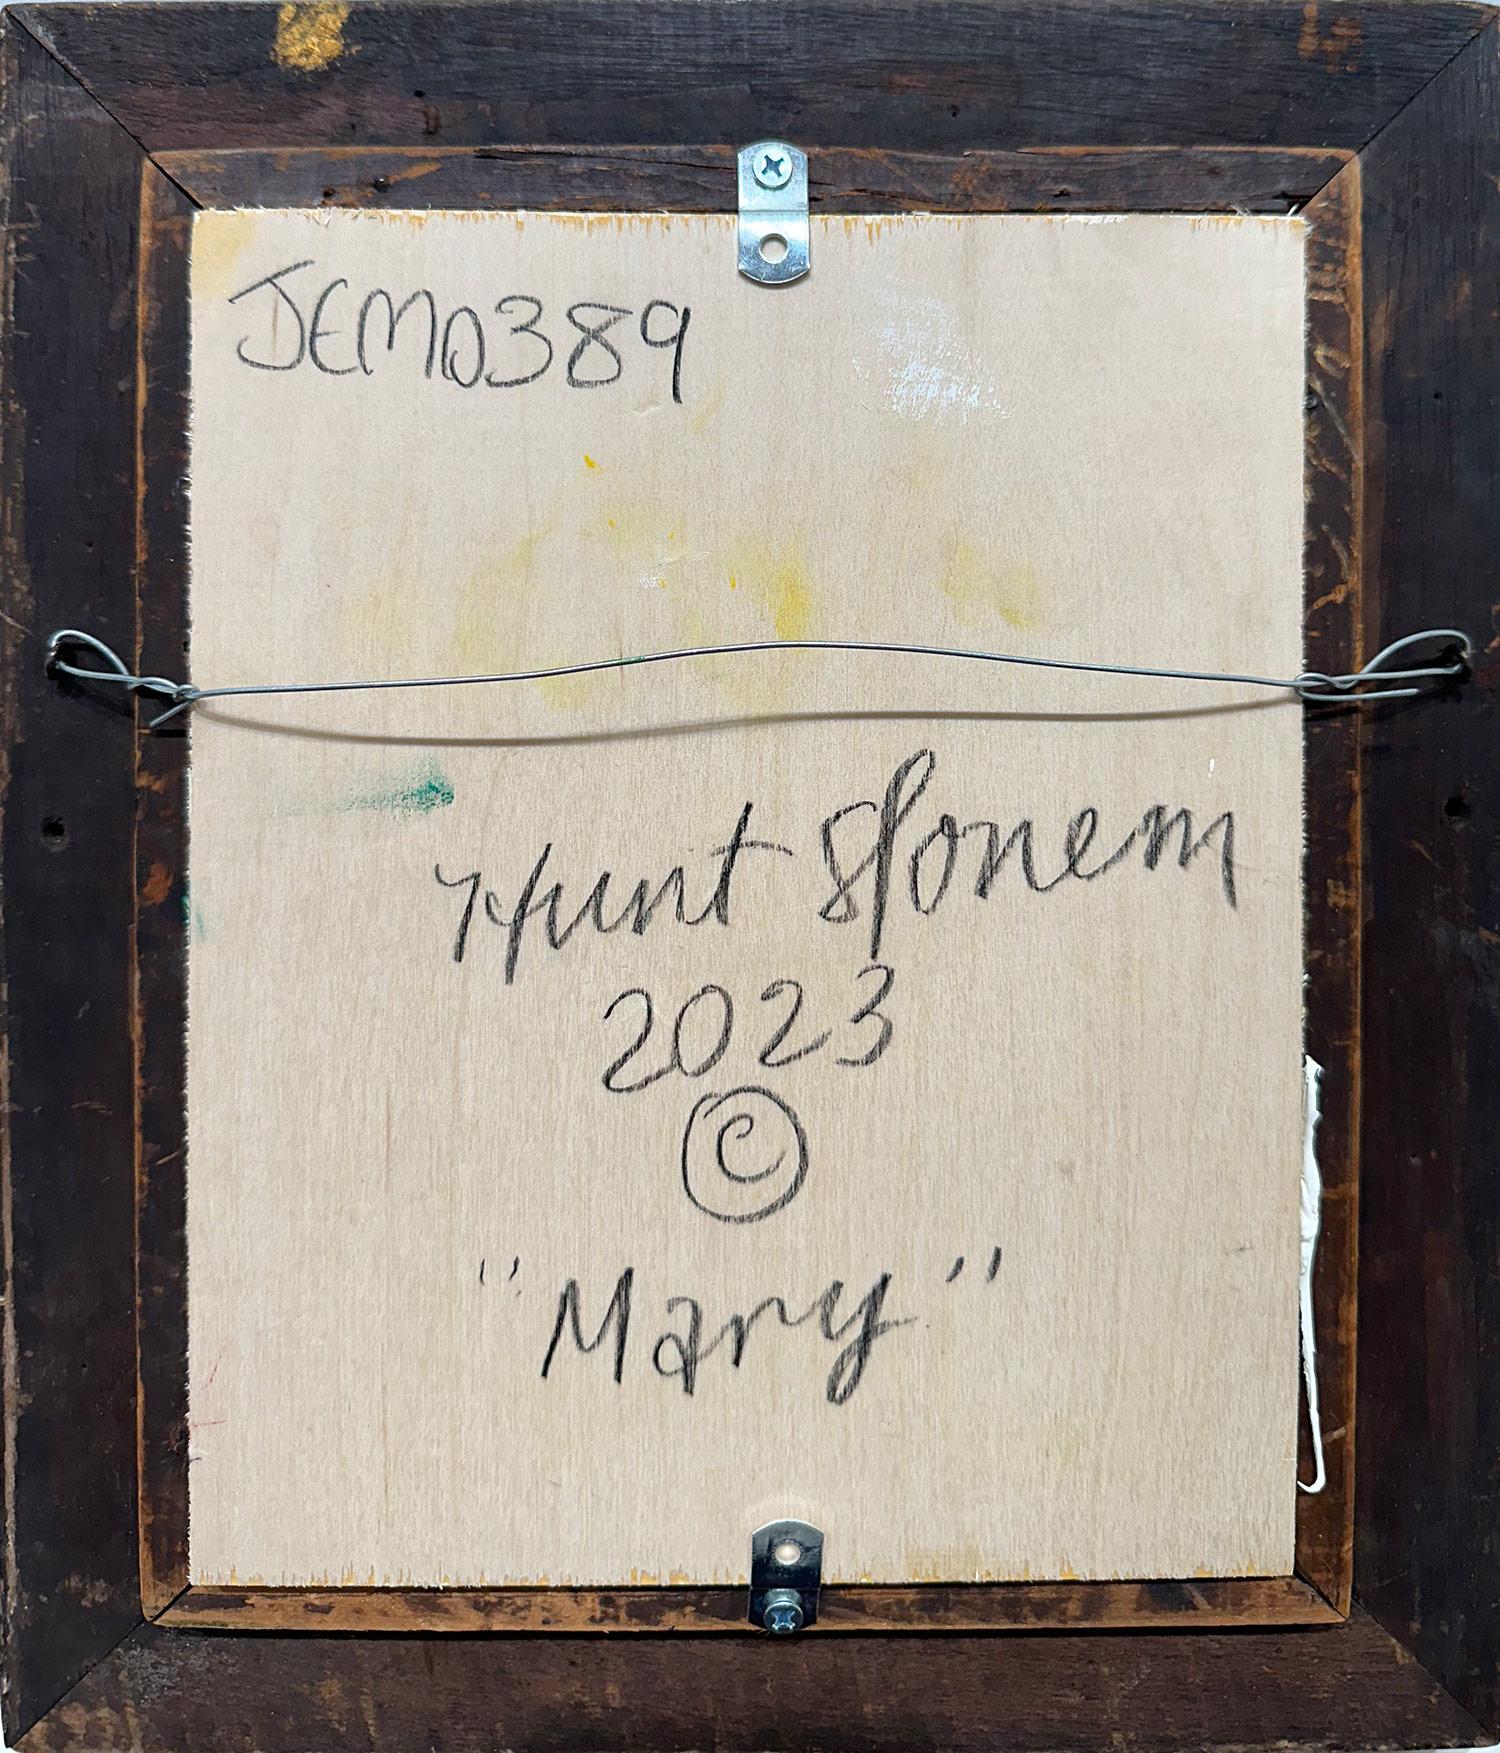 JEM0389
Hunt Slonem
2023
©
"Mary"